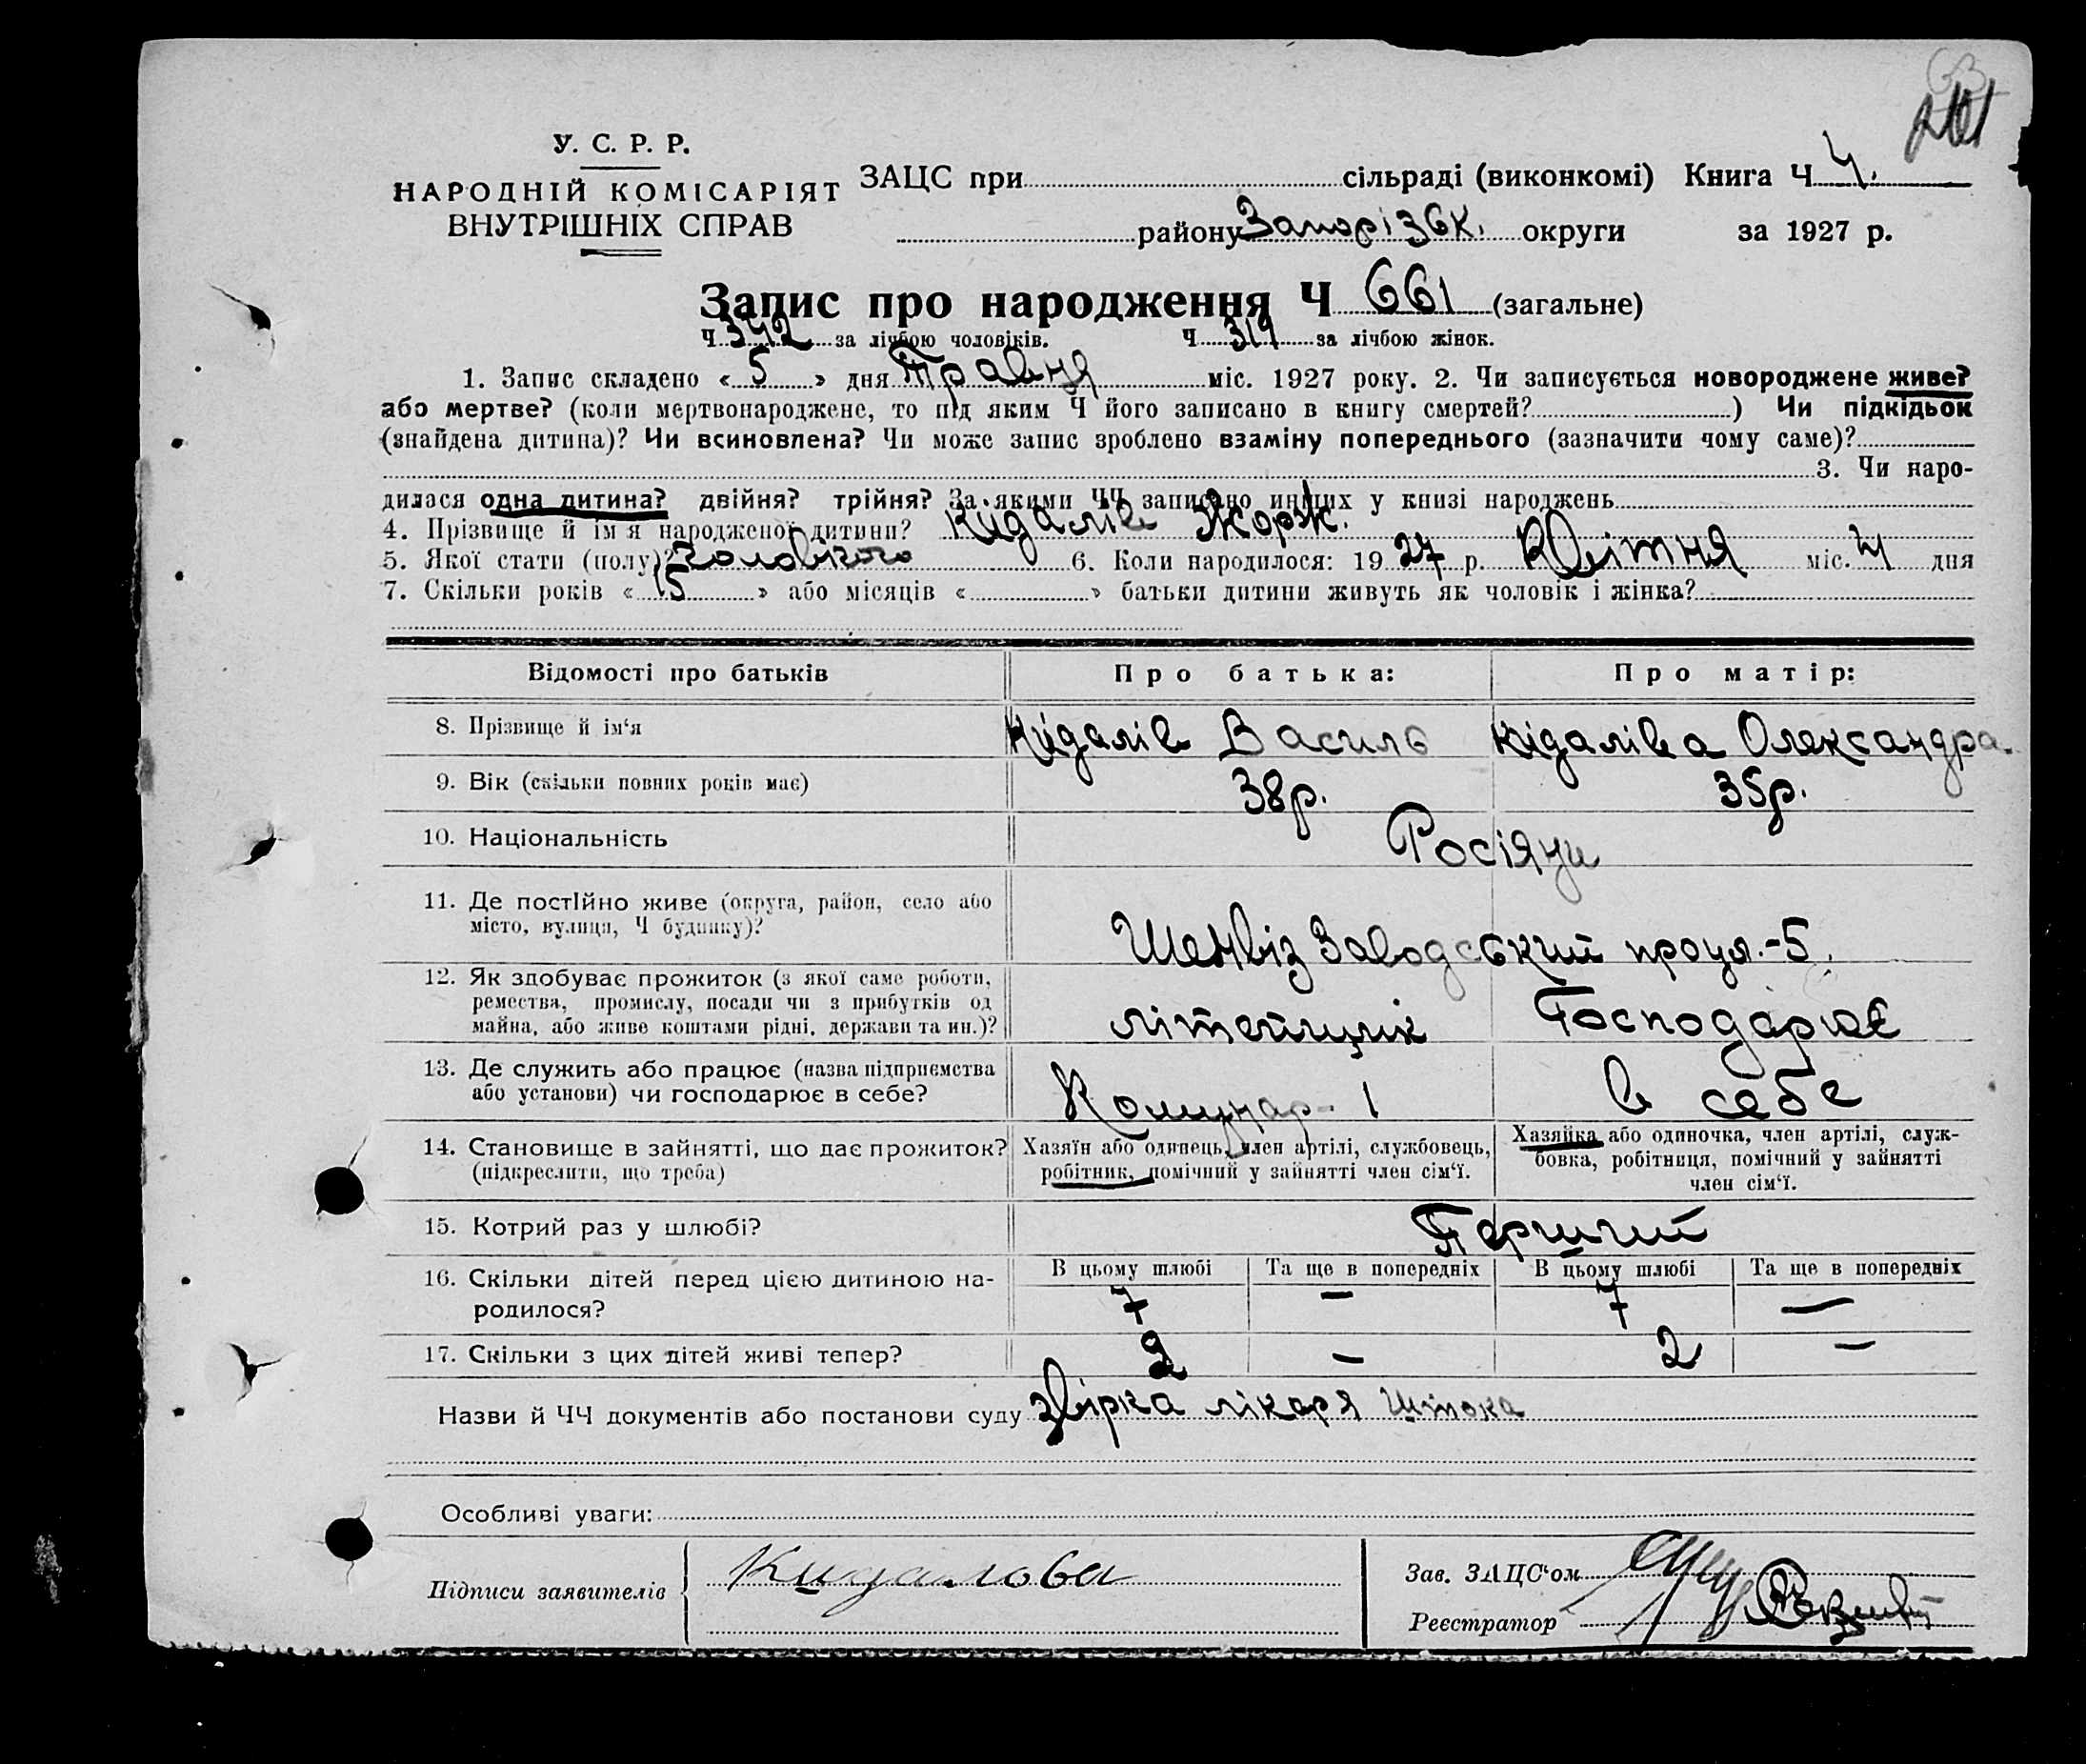 У. С. Р. Р.
НАРОДНІЙ КОМІСАРІЯТ
ВНУТРІШНІХ СПРАВ
ЗАЦС при сільраді (виконкомі) Книга Ч 4.
району Запорізьк. округи за 1927 р.
Запис про народження Ч 661 (загальне)
Ч 342 за лічбою чоловіків. Ч 319 за лічбою жінок.
1. Запис складено « 5 » дня Травня міс. 1927 року. 2. Чи записується новороджене живе?
або мертве? (коли мертвонароджене, то під яким Ч його записано в книгу смертей? ) Чи підкідьок
(знайдена дитина)? Чи всиновлена? Чи може запис зроблено взаміну попереднього (зазначити чому саме)?
3. Чи наро-
дилася одна дитина? двійня? трійня? За якими ЧЧ записано инших у книзі народжень
4. Прізвище й ім'я народженої дитини? Кідалів Жорж.
5. Якої стати (полу)? чоловічого 6. Коли народилося: 1927 р. Квітня міс. 4 дня
7. Скільки років « 15 » або місяців « » батьки дитини живуть як чоловік і жінка?
Відомості про батьків Про батька: Про матір:
8. Прізвище й ім'я Кідалів Василь Кідаліва Олександра
9. Вік (скільки повних років має) 38р. 35р.
10. Національність Росіяни
11. Де постійно живе (округа, район, село або
місто, вулиця, Ч будинку)? Шенвіз Заводський проул.-5.
12. Як здобуває прожиток (з якої саме роботи,
ремества, промислу, посади чи з прибутків од
майна, або живе коштами рідні, держави та ин.)? літейщик Господарює
13. Де служить або працює (назва підприємства
або установи) чи господарює в себе? Комунар-1 в себе
14. Становище в зайнятті, що дає прожиток?
(підкреслити, що треба)
Хазяїн або одинець, член артілі, службовець,
робітник, помічний у зайнятті член сім'ї.
Хазяйка або одиночка, член артілі, служ-
бовка, робітниця, помічний у зайнятті
член сім'ї.
15. Котрий раз у шлюбі? Перший
16. Скільки дітей перед цією дитиною на-
родилося?
В цьому шлюбі Та ще в попередніх В цьому шлюбі Та ще в попередніх
7 — 7 —
17. Скільки з цих дітей живі тепер? 2 — 2 —
Назви й ЧЧ документів або постанови суду звірка лікаря Штока
Особливі уваги:
Підписи заявителів Кидалова
Зав. ЗАЦС'ом
Реєстратор